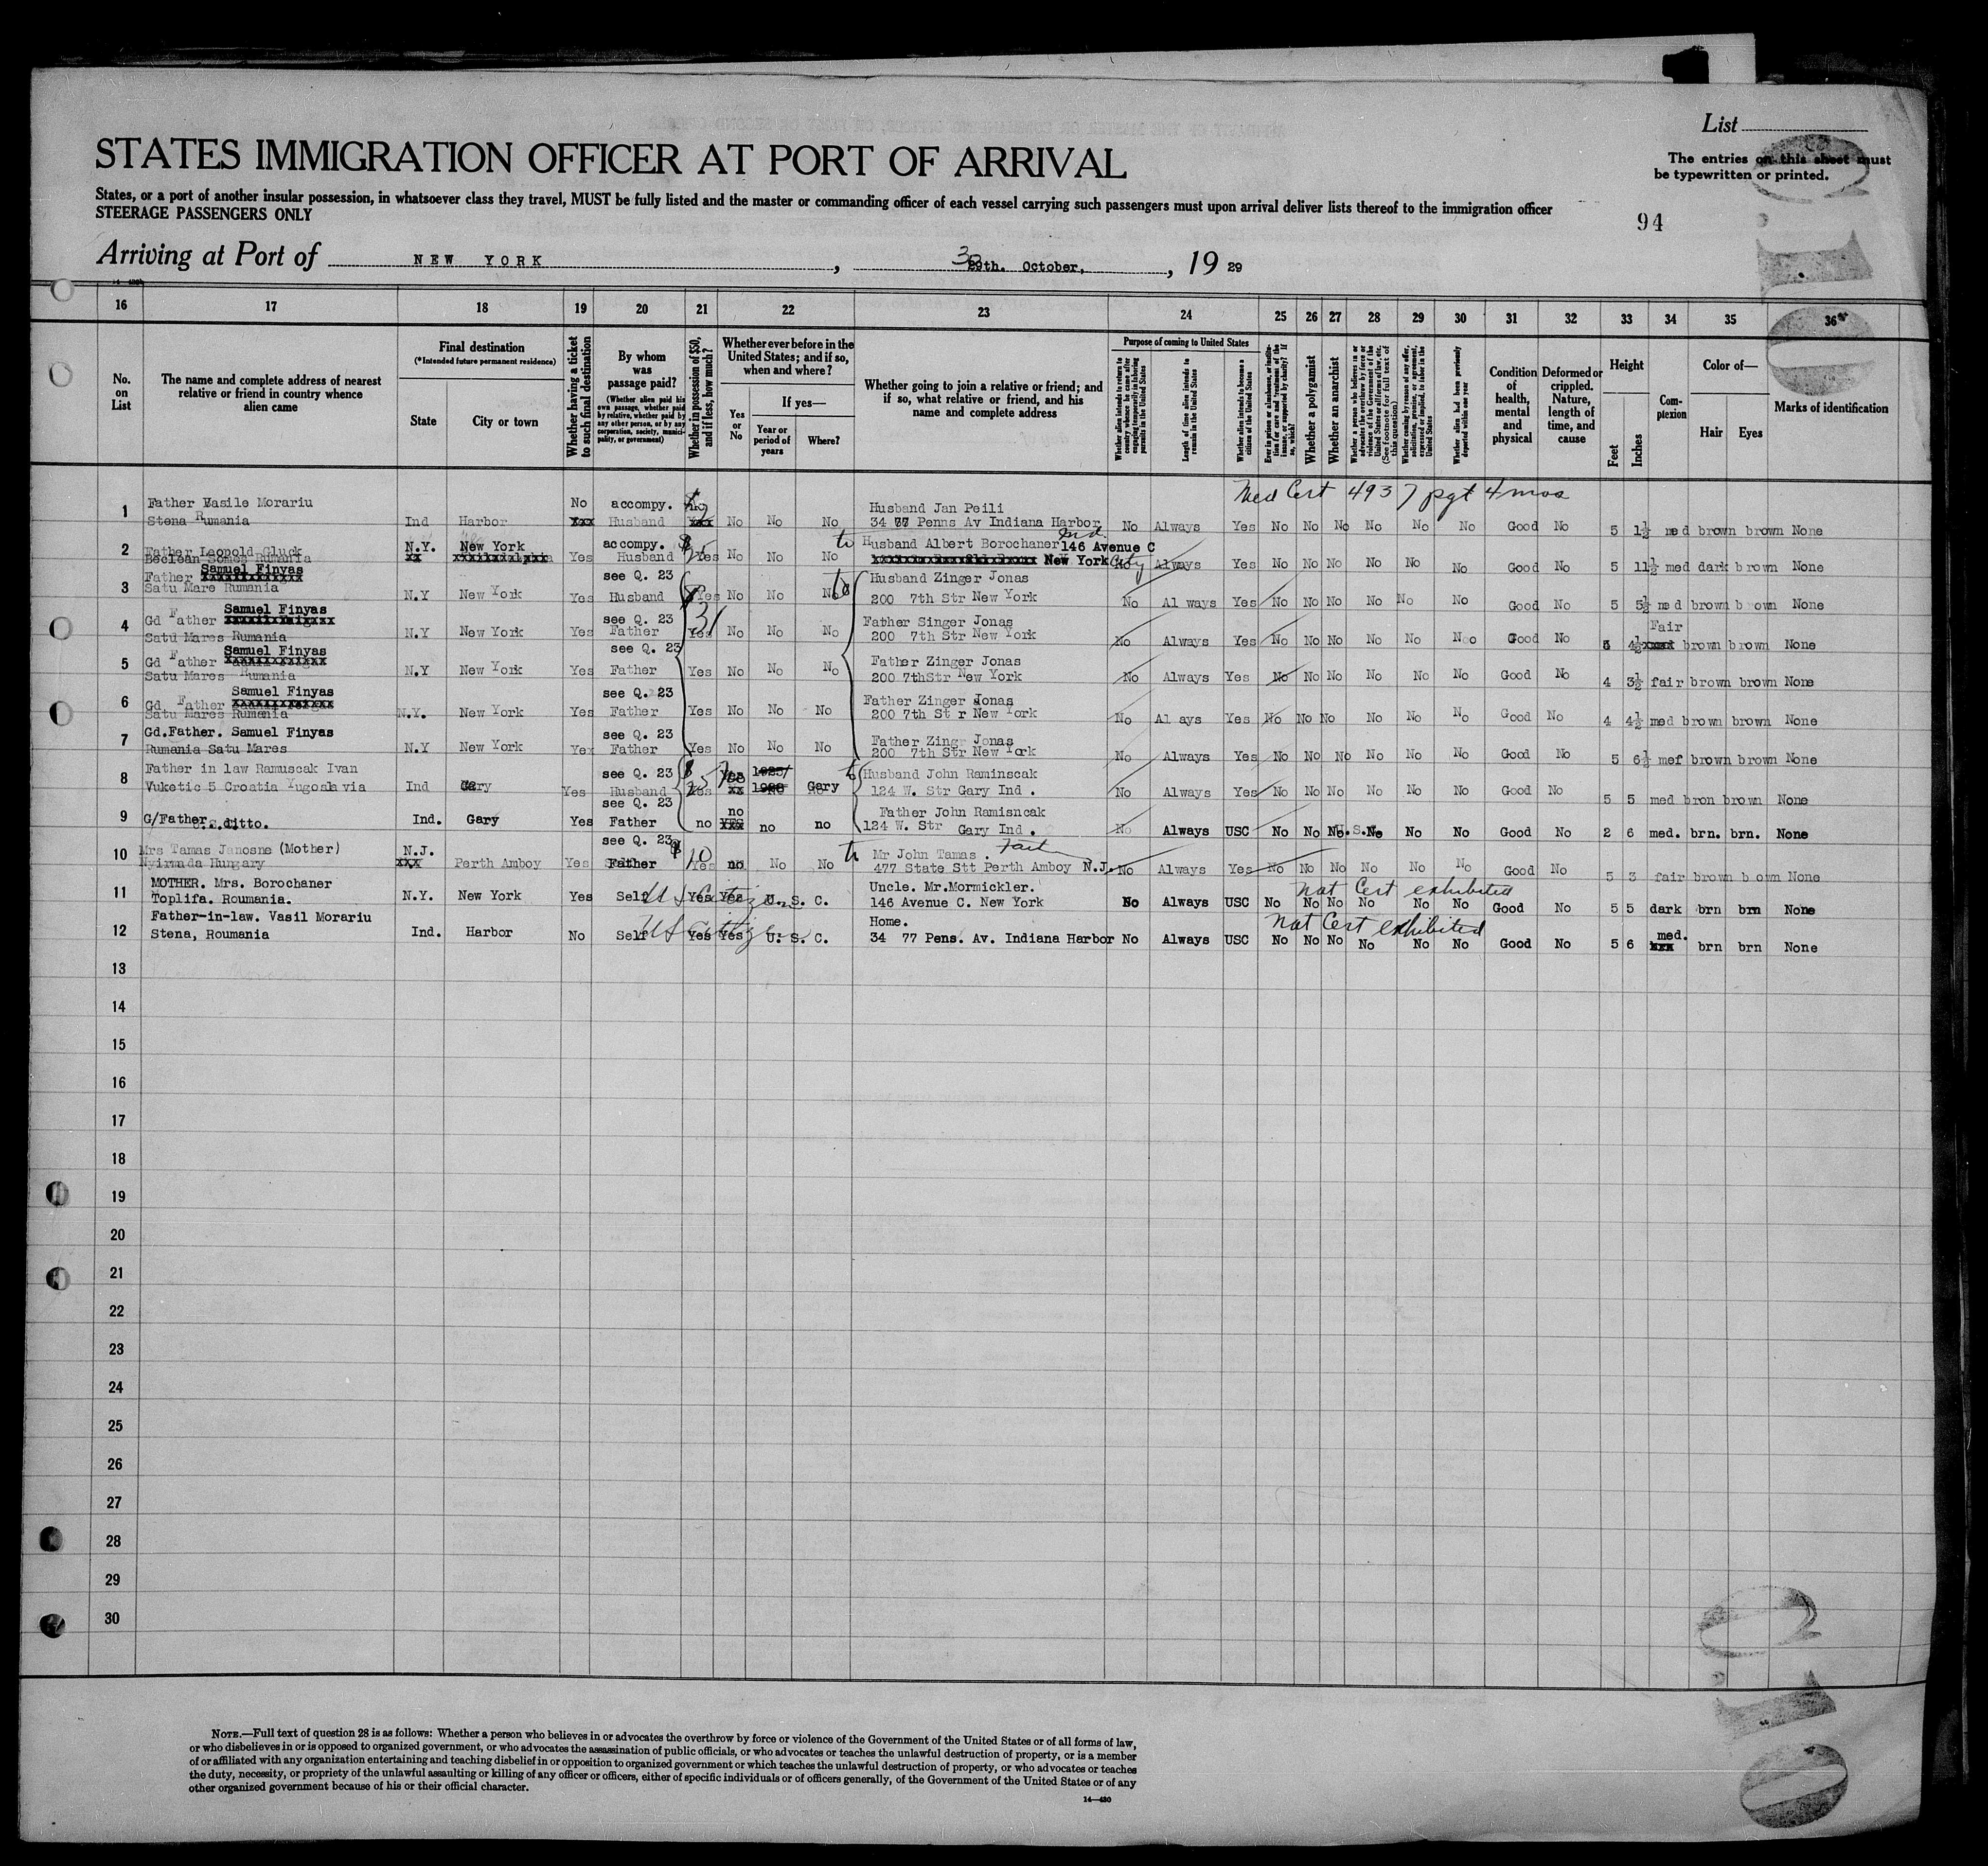 List
The entries on this sheet must
be typewritten or printed.
STATES IMMIGRATION OFFICER AT PORT OF ARRIVAL
States, or a port of another insular possession, in whatsoever class they travel, MUST be fully listed and the master or commanding officer of each vessel carrying such passengers must upon arrival deliver lists thereof to the immigration officer
STEERAGE PASSENGERS ONLY
94
Arriving at Port of NEW YORK, 30th. October, 19 29
16 17 18 19 20 21 22 23 24 25 26 27 28 29 30 31 32 33 34 35 36
No. on List
The name and complete address of nearest relative or friend in country whence alien came
Final destination
(*Intended future permanent residence)
State
City or town
Whether having a ticket to such final destination
By whom was passage paid?
(Whether alien paid his own passage, whether paid by relative, whether paid by any other person, or by any corporation, society, municipality, or government)
Whether in possession of $50, and if less, how much?
Whether ever before in the United States; and if so, when and where?
Yes or No
If yes—
Year or period of years
Where?
Whether going to join a relative or friend; and if so, what relative or friend, and his name and complete address
Purpose of coming to United States
Whether alien intends to return to country whence he came after engaging temporarily in laboring pursuits in the United States
Length of time alien intends to remain in the United States
Whether alien intends to become a citizen of the United States
Ever in prison or almshouse, or institution for care and treatment of the insane, or supported by charity? If so, which?
Whether a polygamist
Whether an anarchist
Whether a person who believes in or advocates the overthrow by force or violence of the Government of the United States or all forms of law, etc. (See footnote for full text of this question)
Whether coming by reason of any offer, solicitation, promise, or agreement, expressed or implied, to labor in the United States
Whether alien had been previously deported within one year
Condition of health, mental and physical
Deformed or crippled. Nature, length of time, and cause
Height
Feet
Inches
Complexion
Color of—
Hair
Eyes
Marks of identification
Med Cert 493 7 pgt 4 mos
1 Father Vasile Morariu No accompy. Husband Jan Peili
Stena Rumania Ind Harbor xxx Husband No No No 34 77 Penns Av Indiana Harbor Ind. No Always Yes No No No No No No Good No 5 1½ med brown brown None
2 Father Leopold Gluck N.Y. New York accompy. to Husband Albert Borochaner 146 Avenue C
Beclean Somes Rumania xx Yes Husband Yes No No No New York City No Always Yes No No No No No No Good No 5 11½ med dark brown None
3 Father Samuel Finyas see Q. 23 to Husband Zinger Jonas
Satu Mare Rumania N.Y New York Yes Husband Yes No No No 200 7th Str New York No Al ways Yes No No No No No No Good No 5 5½ med brown brown None
4 Gd Father Samuel Finyas see Q. 23 31 Father Singer Jonas Fair
Satu Mares Rumania N.Y New York Yes Father Yes No No No 200 7th Str New York No Always Yes No No No No No No Good No 5 4½ brown brown None
5 Gd Father Samuel Finyas see Q. 23 Father Zinger Jonas
Satu Mares Rumania N.Y New York Yes Father Yes No No No 200 7thStr New York No Always Yes No No No No No No Good No 4 3½ fair brown brown None
6 Gd. Father Samuel Finyas see Q. 23 Father Zinger Jonas
Satu Mares Rumenia N.Y. New York Yes Father Yes No No No 200 7th St r New York No Al ays Yes No No No No No No Good No 4 4½ med brown brown None
7 Gd.Father. Samuel Finyas see Q. 23 Father Zing Jonas
Rumania Satu Mares N.Y New York Yex Father Yes No No No 200 7th Str New York No Always Yes No No No No No No Good No 5 6½ mef brown brown None
8 Father in law Ramuscak Ivan see Q. 23 $ 25 Yes to Husband John Raminscak
Vuketic 5 Croatia Yugosla via Ind Gary Yes Husband Yes xx Gary 124 W. Str Gary Ind . No Always Yes No No No No No No Good No 5 5 med bron brown None
9 G/Father. ditto. see Q. 23 no Father John Ramisncak
Ind. Gary Yes Father no no no 124 W. Str Gary Ind . No Always USC No No No U.S. No No No Good No 2 6 med. brn. brn. None
10 Mrs Tamas Janosne (Mother) N.J. see Q. 23 $ 10 to Mr John Tamas . Fath
Nyirmada Hungary xxx Perth Amboy Yes Father Yes no No No 477 State Stt Perth Amboy N.J. No Always Yes No No No No No No Good No 5 3 fair brown b own None
11 MOTHER. Mrs. Borochaner U S Citizen Uncle. Mr.Mormickler. Nat Cert exhibited
Toplifa. Roumania. N.Y. New York Yes Self Yes Yes U. S. C. 146 Avenue C. New York No Always USC No No No No No No Good No 5 5 dark brn brn None
12 Father-in-law. Vasil Morariu U S Citizen Home. Nat Cert exhibited
Stena, Roumania Ind. Harbor No Self Yes Yes U. S. C. 34 77 Pens. Av. Indiana Harbor No Always USC No No No No No No Good No 5 6 med. brn brn None
13
14
15
16
17
18
19
20
21
22
23
24
25
26
27
28
29
30
NOTE.—Full text of question 28 is as follows: Whether a person who believes in or advocates the overthrow by force or violence of the Government of the United States or of all forms of law,
or who disbelieves in or is opposed to organized government, or who advocates the assassination of public officials, or who advocates or teaches the unlawful destruction of property, or is a member
of or affiliated with any organization entertaining and teaching disbelief in or opposition to organized government or which teaches the unlawful destruction of property, or who advocates or teaches
the duty, necessity, or propriety of the unlawful assaulting or killing of any officer or officers, either of specific individuals or of officers generally, of the Government of the United States or of any
other organized government because of his or their official character.
14—430